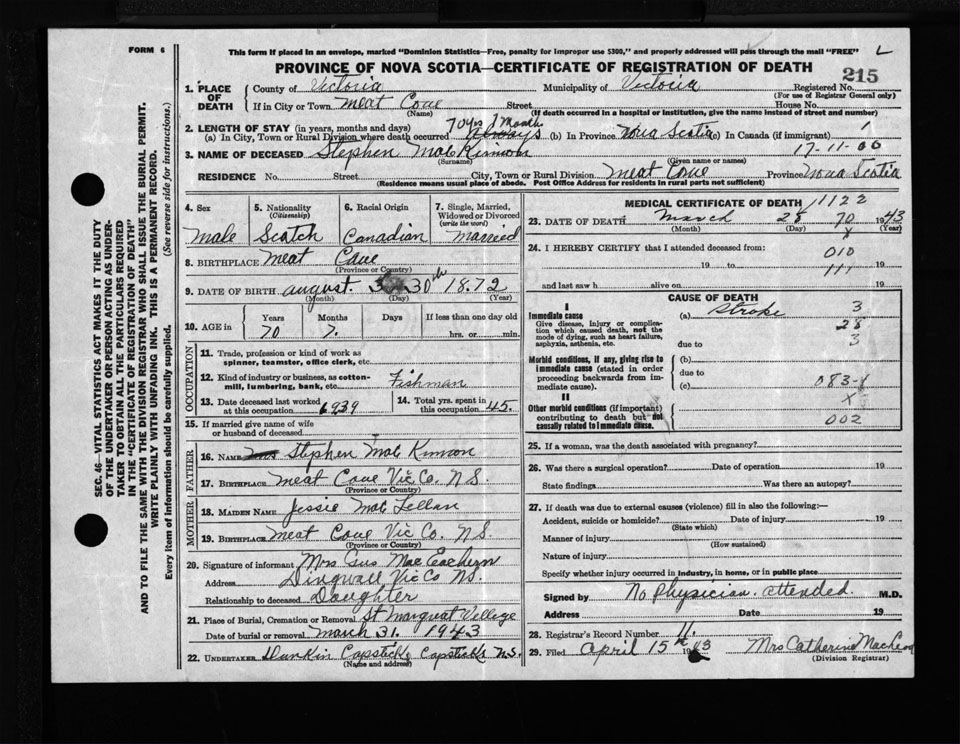 FORM 6
This form if placed in an envelope, marked "Dominion Statistics—Free, penalty for improper use $300," and properly addressed will pass through the mail "FREE"
L
PROVINCE OF NOVA SCOTIA—CERTIFICATE OF REGISTRATION OF DEATH
215
1. PLACE OF DEATH
County of Victoria Municipality of Victoria Registered No.
(For use of Registrar General only)
If in City or Town Meat Cove Street House No.
(Name) (If death occurred in a hospital or institution, give the name instead of street and number)
2. LENGTH OF STAY (in years, months and days) 70 yrs 7 Months
(a) In City, Town or Rural Division where death occurred always (b) In Province Nova Scotia (c) In Canada (if immigrant) 1
3. NAME OF DECEASED Stephen Mac Kinnon 17-11-00
(Surname) (Given name or names)
RESIDENCE No. Street City, Town or Rural Division Meat Cove Province Nova Scotia
(Residence means usual place of abode. Post Office Address for residents in rural parts not sufficient)
4. Sex
Male
5. Nationality
(Citizenship)
Scotch
6. Racial Origin
Canadian
7. Single, Married, Widowed or Divorced
(write the word)
Married
8. BIRTHPLACE Meat Cove
(Province or Country)
9. DATE OF BIRTH august. 30th 1872
(Month) (Day) (Year)
10. AGE in
Years Months Days If less than one day old
70 7. hrs. or min.
OCCUPATION
11. Trade, profession or kind of work as spinner, teamster, office clerk, etc.
12. Kind of industry or business, as cotton-mill, lumbering, bank, etc. Fishman
13. Date deceased last worked at this occupation 1939
14. Total yrs. spent in this occupation 45.
15. If married give name of wife or husband of deceased
FATHER
16. NAME Stephen Mac Kinnon
17. BIRTHPLACE Meat Cove Vic Co. N.S.
(Province or Country)
MOTHER
18. MAIDEN NAME Jessie Mac Lellan
19. BIRTHPLACE Meat Cove Vic Co. N.S.
(Province or Country)
20. Signature of informant Mrs Gus Mac Eachern
Address Dingwall Vic Co NS.
Relationship to deceased Daughter
21. Place of Burial, Cremation or Removal St Margret Vellege
Date of burial or removal March 31. 1943
22. UNDERTAKER Dunkin Capstick Capstick N.S.
(Name and address)
MEDICAL CERTIFICATE OF DEATH 1122
23. DATE OF DEATH March 28 70 1943
(Month) (Day) x (Year)
24. I HEREBY CERTIFY that I attended deceased from:
010
19 to 111 19
and last saw h alive on 19
CAUSE OF DEATH
I
Immediate cause
Give disease, injury or complication which caused death, not the mode of dying, such as heart failure, asphyxia, asthenia, etc.
(a) Stroke 3
28
due to 3
Morbid conditions, if any, giving rise to immediate cause (stated in order proceeding backwards from immediate cause).
(b)
due to
(c) 083-1
II
X
Other morbid conditions (if important) contributing to death but not causally related to immediate cause.
002
25. If a woman, was the death associated with pregnancy?
26. Was there a surgical operation? Date of operation 19
State findings Was there an autopsy?
27. If death was due to external causes (violence) fill in also the following:—
Accident, suicide or homicide? Date of injury 19
(State which)
Manner of injury
(How sustained)
Nature of injury
Specify whether injury occurred in industry, in home, or in public place
Signed by No Physician attended. M.D.
Address Date 19
28. Registrar's Record Number 11.
29. Filed April 15th 1943 Mrs Catherine MacLeod
(Division Registrar)
SEC. 46—VITAL STATISTICS ACT MAKES IT THE DUTY
OF THE UNDERTAKER OR PERSON ACTING AS UNDER-
TAKER TO OBTAIN ALL THE PARTICULARS REQUIRED
IN THE "CERTIFICATE OF REGISTRATION OF DEATH"
AND TO FILE THE SAME WITH THE DIVISION REGISTRAR WHO SHALL ISSUE THE BURIAL PERMIT.
WRITE PLAINLY WITH UNFADING INK. THIS IS A PERMANENT RECORD.
Every item of information should be carefully supplied. (See reverse side for instructions.)